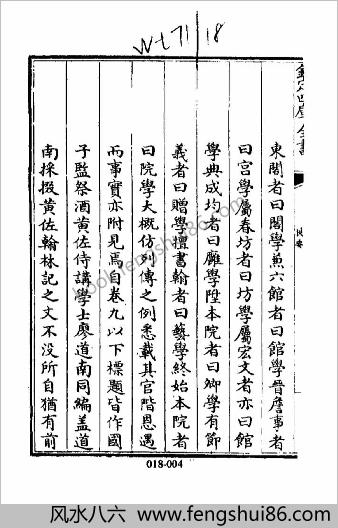 Wt71/18
欽定四庫全書
提要
東閣者曰閣學蒞六館者曰館學晉詹事者
曰宮學屬春坊者曰坊學屬宏文者亦曰館
學典成均者曰廱學陞本院者曰卿學有節
義者曰贈學擅書翰者曰藝學終始本院者
曰院學大概仿列傳之例悉載其官階恩遇
而事實亦附見焉自卷九以下標題皆作國
子監祭酒黃佐侍講學士廖道南同編蓋道
南採掇黃佐翰林記之文不没所自猶有前
018-004
book.fengshui86.com
风水八六 www.fengshui86.com